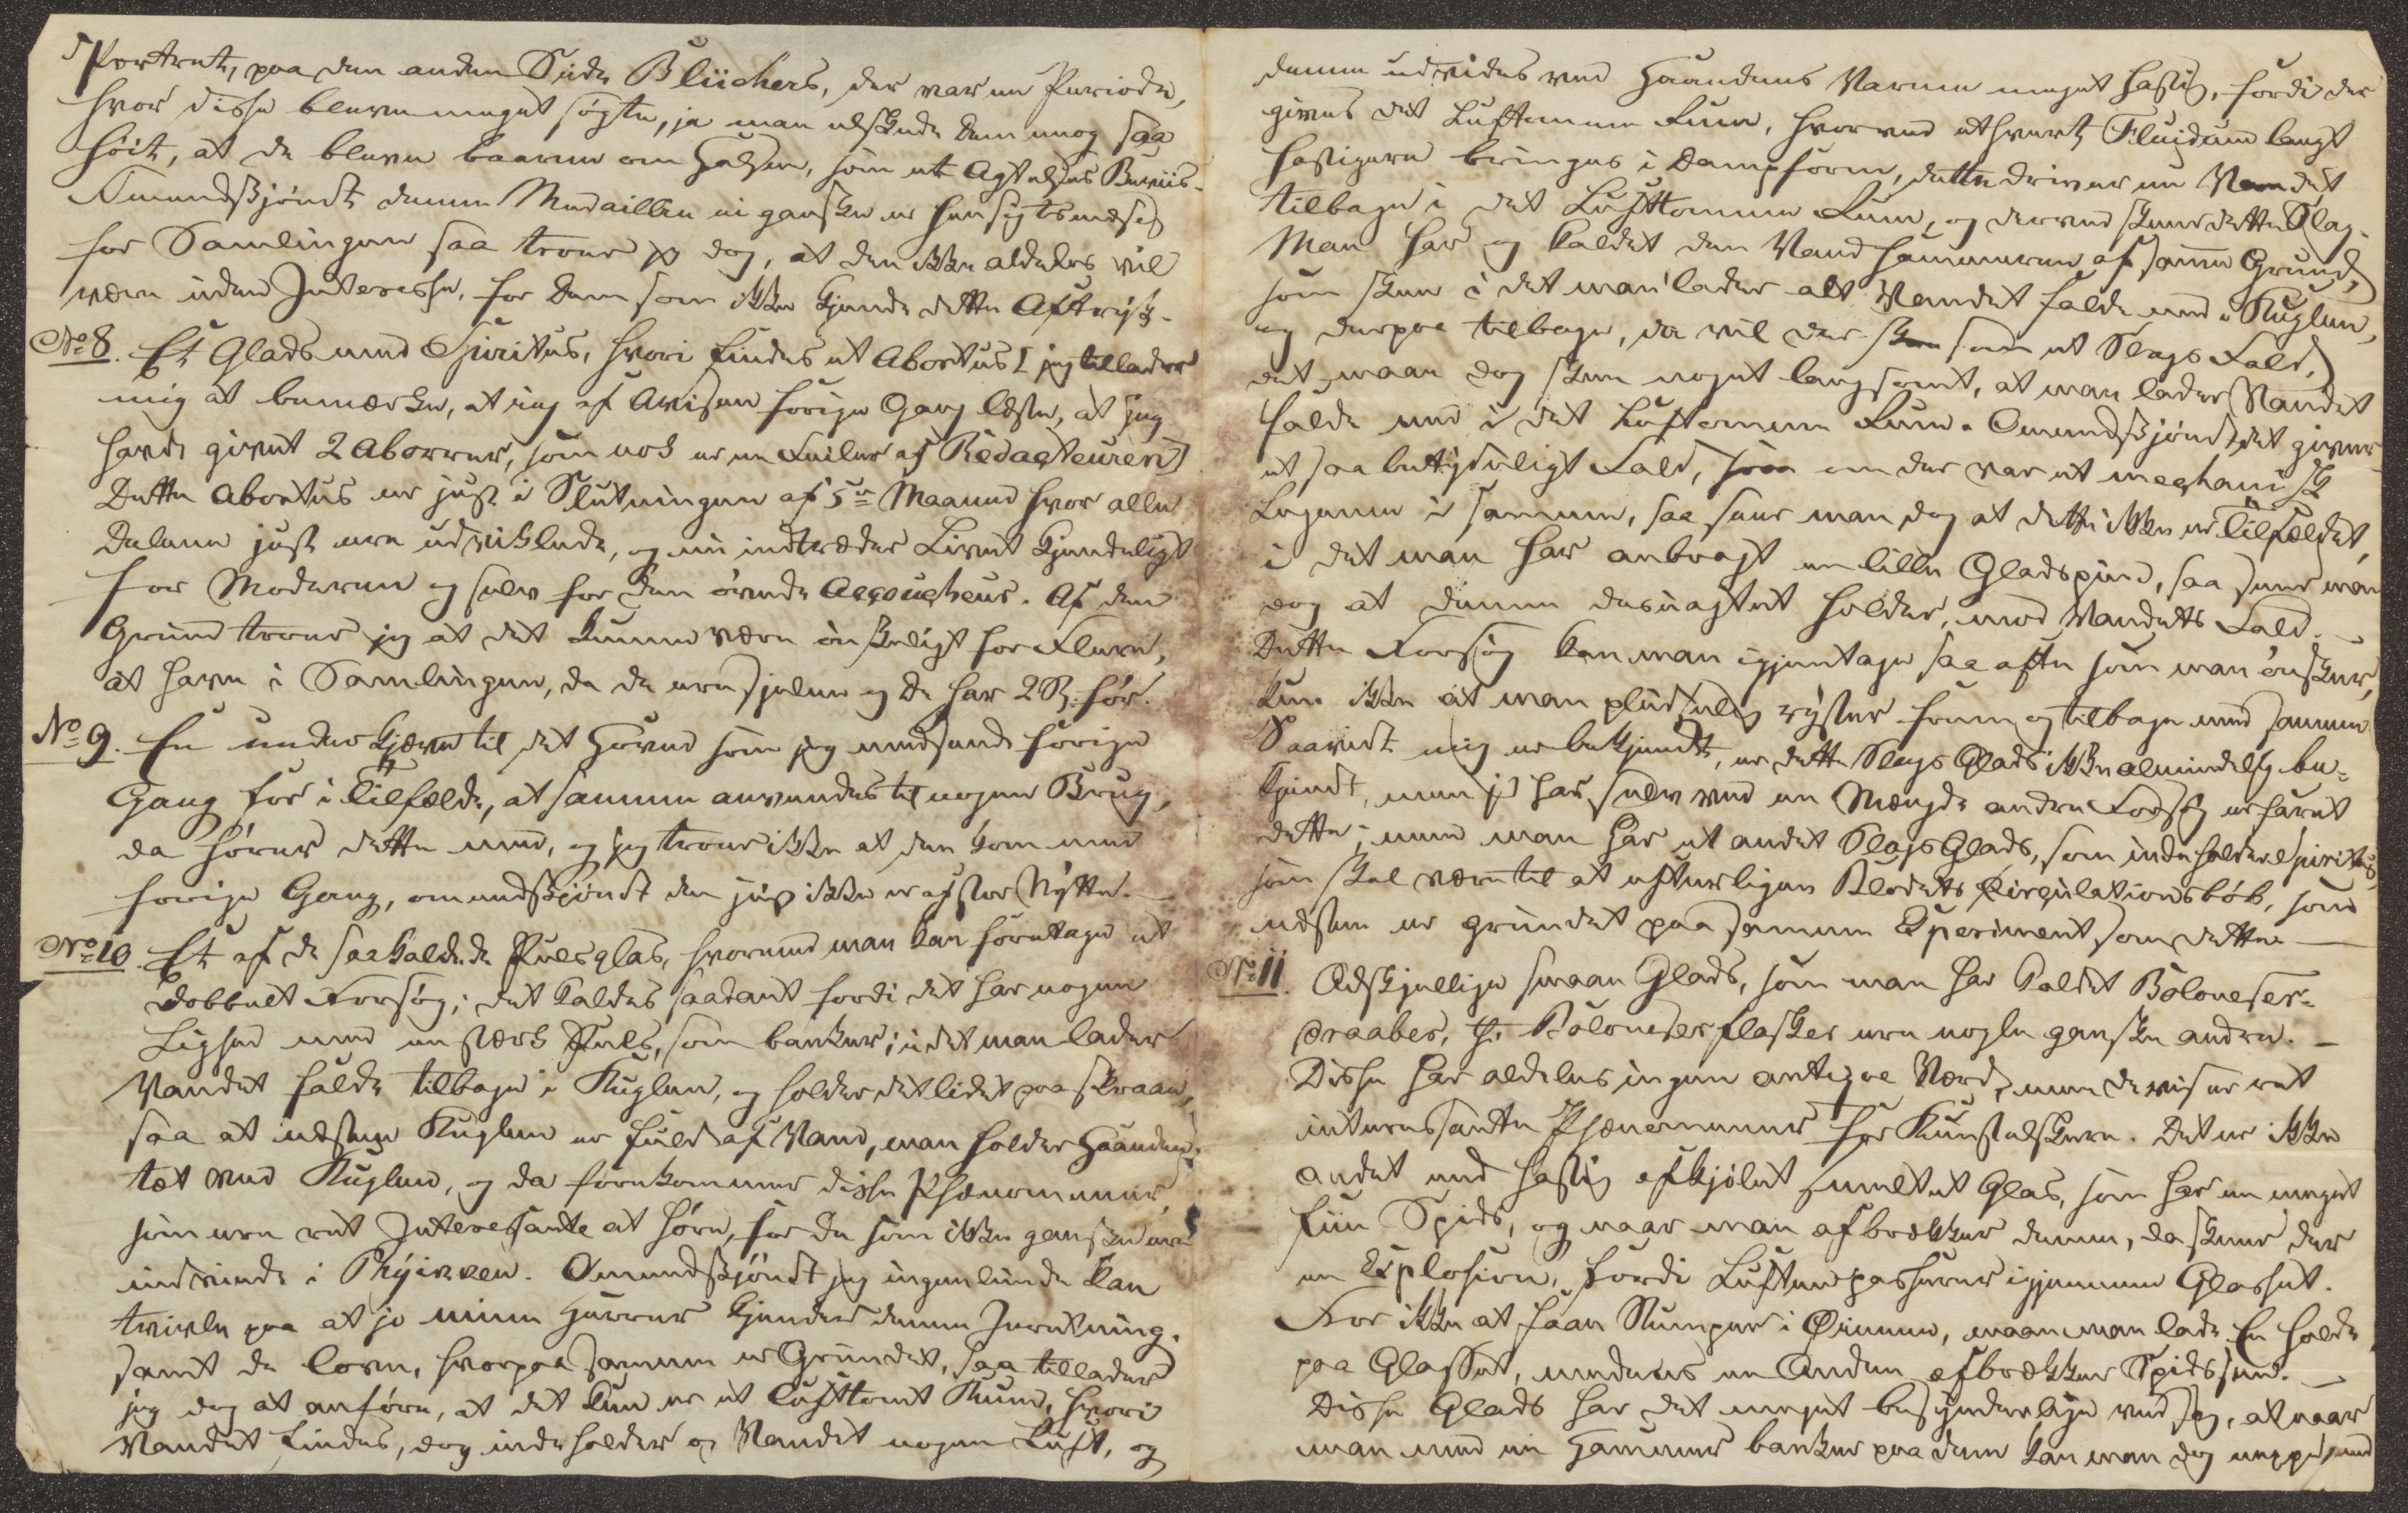 Portræt, paa den anden Side Blüchers, der var en Periode,
hvor disse bleve meget søgte, ja man elskede dem nog saa
høit, at de bleve baarne om Halsen, som et Agtelses Beviis.
Omendskjöndt denne Medaillen ei ganske er hensigtsmæsig
for Samlingen saa troer jeg dog, at den ikke aldeles vil
være uden Interesse, for Dem som ikke kjende dette Aftryk.
No 8. Et Glads med Spiritus, hvori findes et Abortus [jeg tillader
mig at bemærke, at jeg af Avisen forige Gang læste, at jeg
havde givet 2 Aborrer, som nok er en Feiler af Redacteuren]
Dette Abortus er just i Slutningen af 5te Maaned hvor alle
Delene just ere udviklede, og nu indtræder Livet kjendeligt
for Moderen og selv for den övede Accoucheur. Af den
Grund troer jeg at det kunne være önskeligt for Flere,
at have i Samlingen, da de ere sjelne og De har 2 St. før.
No 9. En underkjæve til det Hoved som jeg medsende forige
Gang for i Tilfælde, at samme anvendes til nogen Brug,
da hører dette med, og jeg troer ikke at den kom med
forige Gang, omendskjöndt den just ikke er af stor Nytte.
No 10. Et af de saakaldede Pulsglas, hvormed man kan foretage et
dobbelt Forsøg; det kaldes saadant fordi det har nogen
Lighed med en stærk Puls, som banker; i det man lader
Vandet falde tilbage i Kuglen, og holder det lidet paa skraa,
saa at nedstnye Kuglen er fuld af Vand, man holder Haanden
tæt ved Kuglen, og da forekommer disse Phænomener,
som ere ret Interesante at høre, for de som ikke ganske ere
indviede i Physikken. Omendskjöndt jeg ingenlunde kan
tvivle paa at jo mine Herrer kjender denne Inretning.
samt de love, hvorpaa samme er Grundet, saa tillader
jeg dog at anføre, at det kun er et lufttomt Rum, hvori
Vandet findes, dog indeholder og Vandet nogen Luft, og
denne udvides ved Haandens Varme meget hastig, fordi der
gives det Lufttomme Rum, hvorved ethvert Fluidum langt
hastigere bringes i Dampform, dette driver nu Vandet
tilbage i det Lufttomme Rum, og derved skeer dette Slag.
Man har og kaldet den Vandhammeren af samme Grund,
som skeer i det man lader alt Vandet falde ned i Kuglen,
og derpaa tilbage, da vil der skee som et Slags Fald,
det maae dog skee noget langsomt, at man lader Vandet
falde ned i det Lufttomme Rum. Omendskjöndt det giver
et saa betydeligt Fald, som om der var et meghanisk
Legeme i samme, saa seer man dog at dette ikke er Tilfældet,
i det man har anbragt en lille Gladspind, saa seer man
dog at denne desuagtet holder, mod Vandets Fald.
Dette Forsøg kan man igjentage saa ofte som man önsker,
kun ikke at man pludselig ryster frem og tilbage med samme
Saavidt mig er bekjendt, er dette Slags Glads ikke almindelig be-
kjendt, men jeg har selv ved en Mængde andre Forsøg erfaret
dette; men man har et andet Slags Glads, som indeholder Spiritus
som skal være til at efterligne Blodets Cirqulationsløb, som
næsten er grundet paa samme Experiment som dette.
No 11. Adskjellige smaae Glads, som man har kaldet Boloneser-
draaber, thi Boloneserflasker ere nogle ganske andre.
Disse har aldeles ingen antiqve Værd, men de viser ret
interessante Phænomener for Kunstelskere. Det er ikke
andet end hastig afkjølet smeltet Glas, som har en meget
fiin Spids, og naar man afbrækker denne, da skeer der
en Explosion, fordi Luften passerer igjennem Glasset.
For ikke at faae Stumper i Øinene, maae man lade En holde
paa Glasset, medens en Anden afbrækker Spidssen.
Disse Glads har det meget besynderlige ved sig, at naar
man med en Hammer banker paa dem kan man dog neppe med